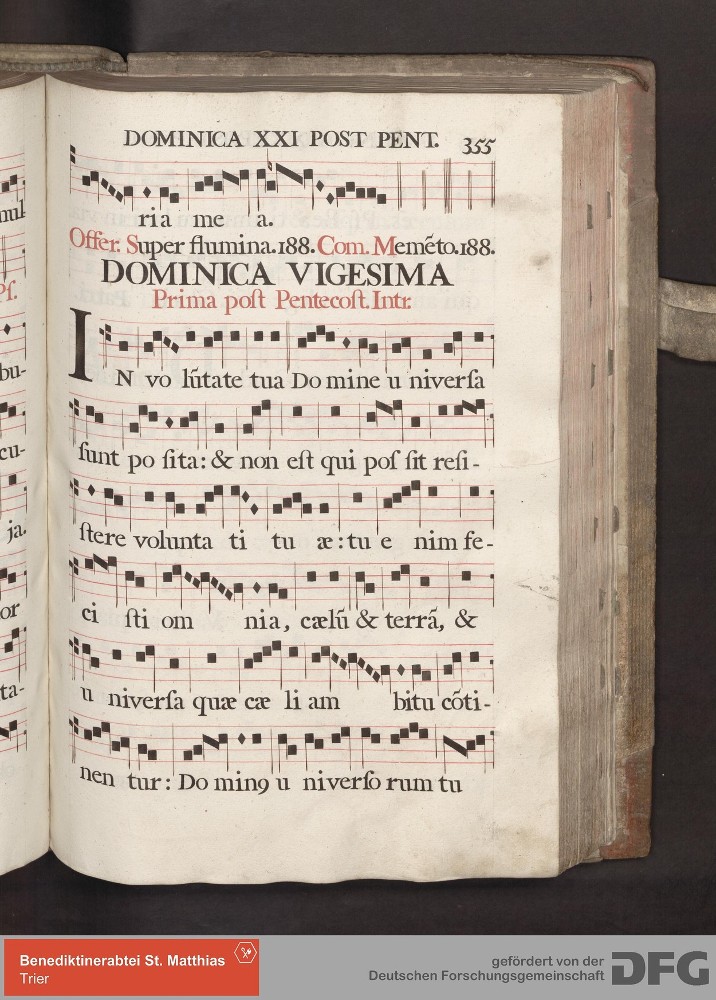 DOMINICA XXI POST PENT. 355
ria me a.
Offer. Super flumina. 188. Com. Memẽto. 188.
DOMINICA VIGESIMA
Prima poſt Pentecoſt. Intr.
IN vo lũtate tua Do mine u niverſa
ſunt po ſita: & non eſt qui poſ ſit reſi-
ſtere volunta ti tu æ: tu e nim fe-
ci ſti om nia, cælũ & terrã, &
u niverſa quæ cæ li am bitu cõti-
nen tur: Do minꝯ u niverſo rum tu
Pſ.
bu-
cu-
ja.
or
ta-
Benediktinerabtei St. Matthias
Trier
gefördert von der
Deutschen Forschungsgemeinschaft DFG